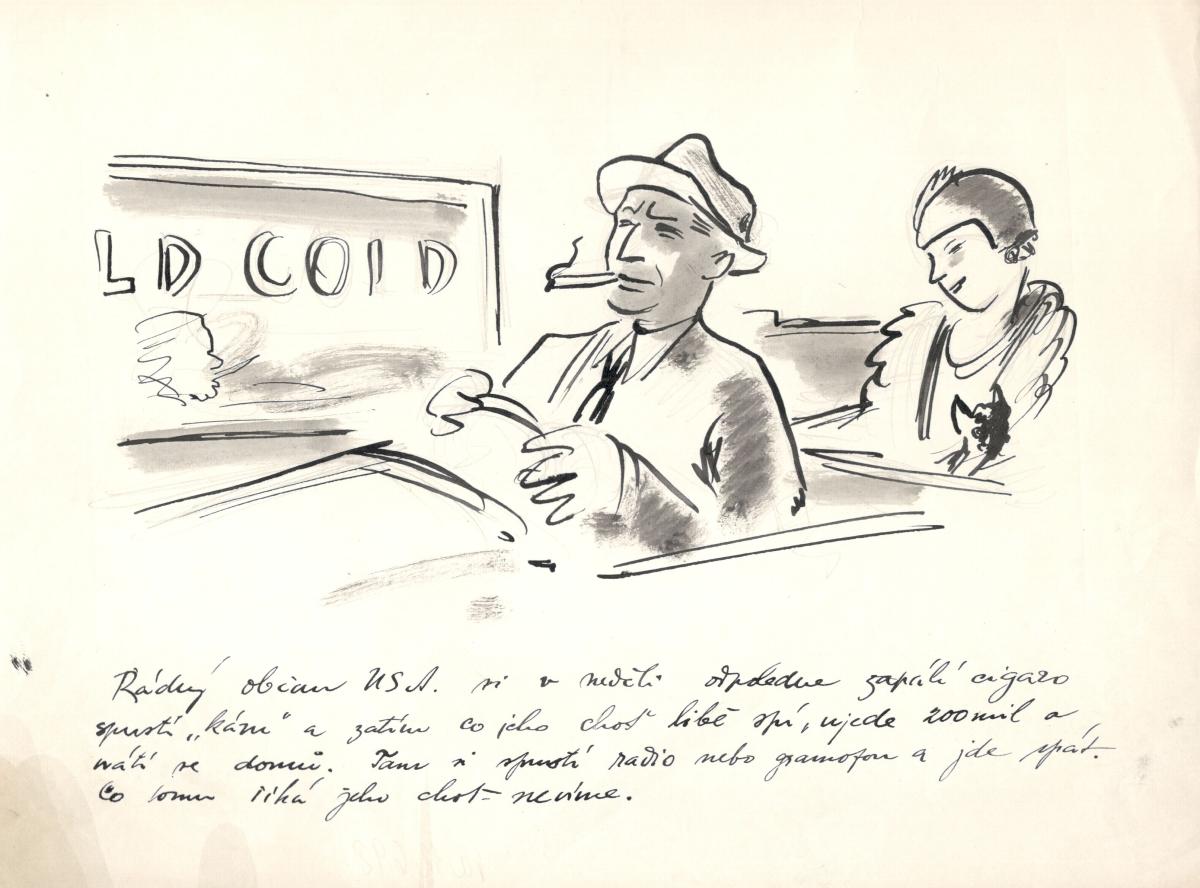 LD COLD
Řádný občan U.S.A. si v neděli odpoledne zapálí cigaro
spustí „káru" a zatím co jeho choť libě spí, ujede 200 mil a
vrátí se domů. Tam si spustí radio nebo gramofon a jde spát.
Co tomu říká jeho choť – nevíme.